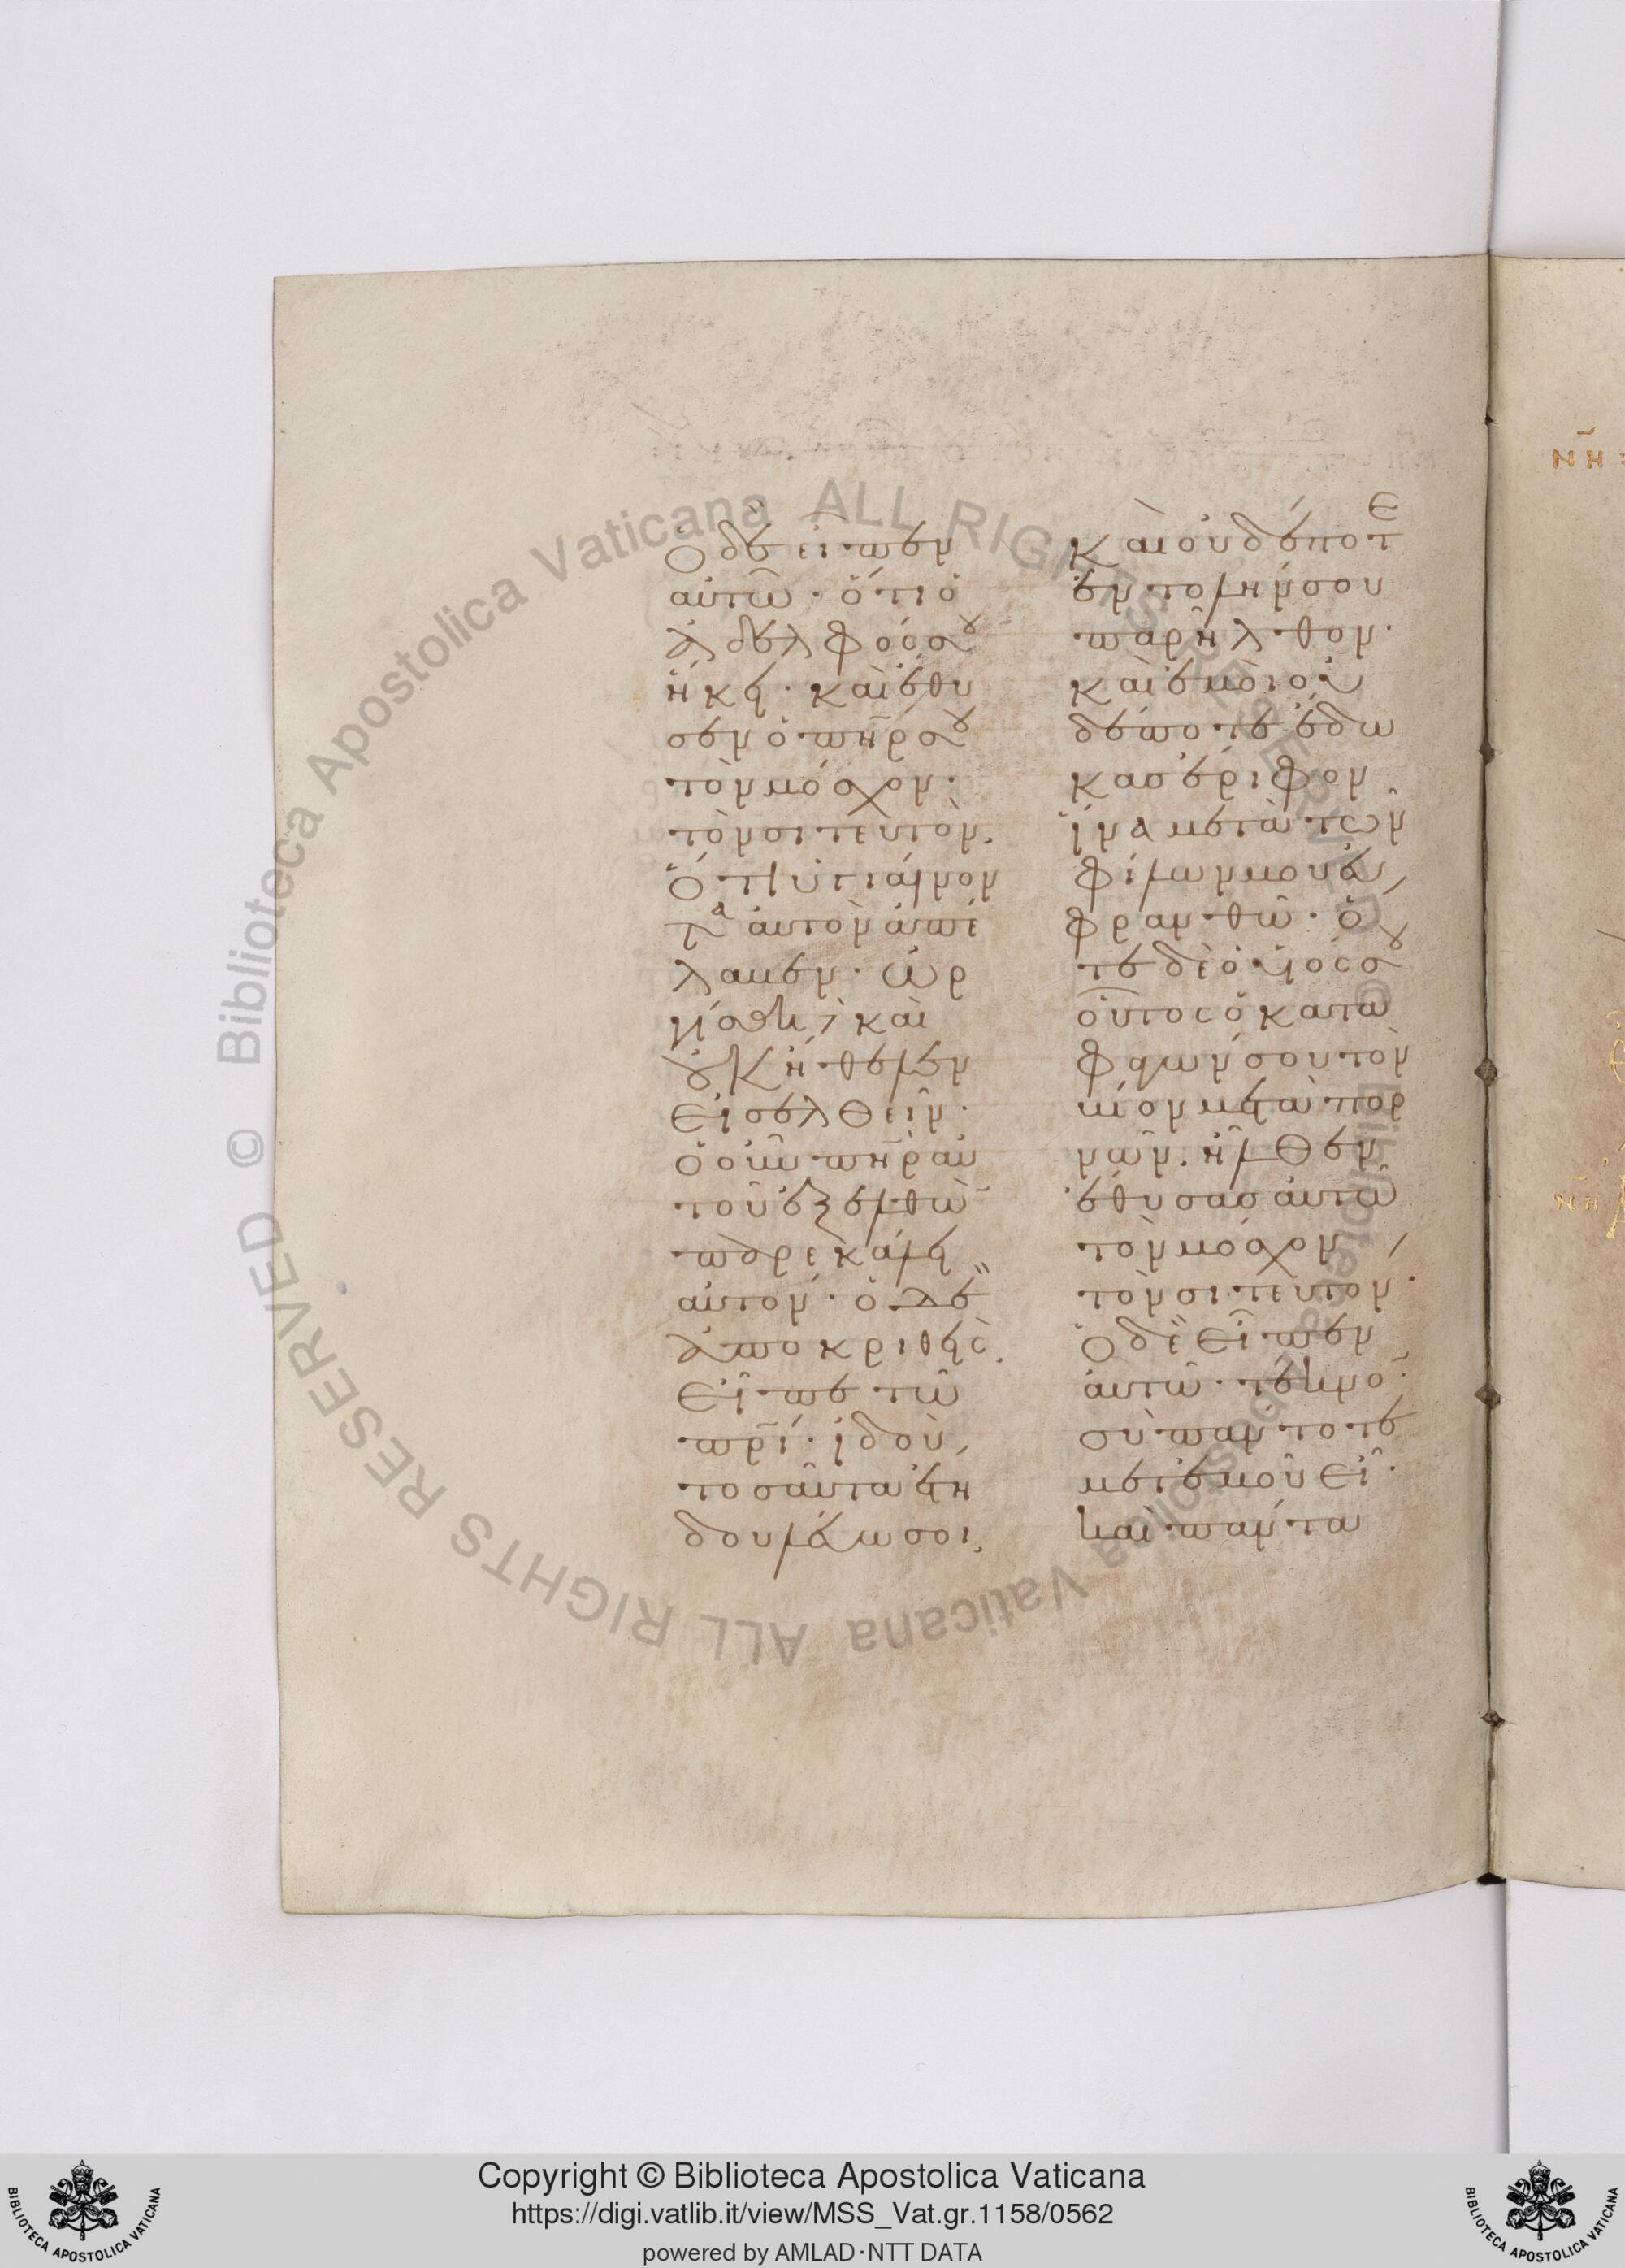 Ὁ δὲ εἶπεν
αὐτῶ· ὅτι ὁ
ἀδελφόσσου
ἥκει· καὶ ἔθυ
σεν ὁ πῆρ σου
τὸν μόσχον·
τὸν σιτευτὸν.
Ὅτι ὑγιαίνον
τα αὐτὸν ἀπέ
λαβεν· ὠρ
γίσθη, καὶ
οὐκ ἤθελεν
εἰσελθεῖν·
ὁ οὖν πῆρ αὐ
τοῦ ἐξελθὼ̄
παρεκάλει
αὐτόν· ὁ δὲ
ἀποκριθεὶς.
εἶπε τῶ
πρῖ· ἰδοὺ,
τοσαῦτα ἔτη
δουλεύω σοι.
Καὶ οὐδέποτε
ἐντολήν σου
παρῆλθον·
καὶ ἐμοὶ οὐ
δέποτε ἔδω
κασ ἔριφον
ἵνα μετὰ τῶν
φίλων μου εὐ,
φρανθῶ· ὅ
τε δὲ ὁ υἱόσ σου
οὗτος ὁ κατα
φαγών σου τὸν
βίον μετὰ πορ
νῶν. ἦλθεν
ἔθυσασ αὐτῶ
τὸν μόσχον,
τὸν σιτευτόν·
Ὁ δὲ εἶπεν
αὐτῶ· τέκνο̄·
σὺ πάντοτε
μετ' ἐμοῦ εἶ·
καὶ πάντα
Biblioteca Apostolica Vaticana ALL RIGHTS RESERVED ©
Biblioteca Apostolica Vaticana ALL RIGHTS RESERVED ©
Copyright © Biblioteca Apostolica Vaticana
https://digi.vatlib.it/view/MSS_Vat.gr.1158/0562
powered by AMLAD·NTT DATA
BIBLIOTECA APOSTOLICA VATICANA
BIBLIOTECA APOSTOLICA VATICANA